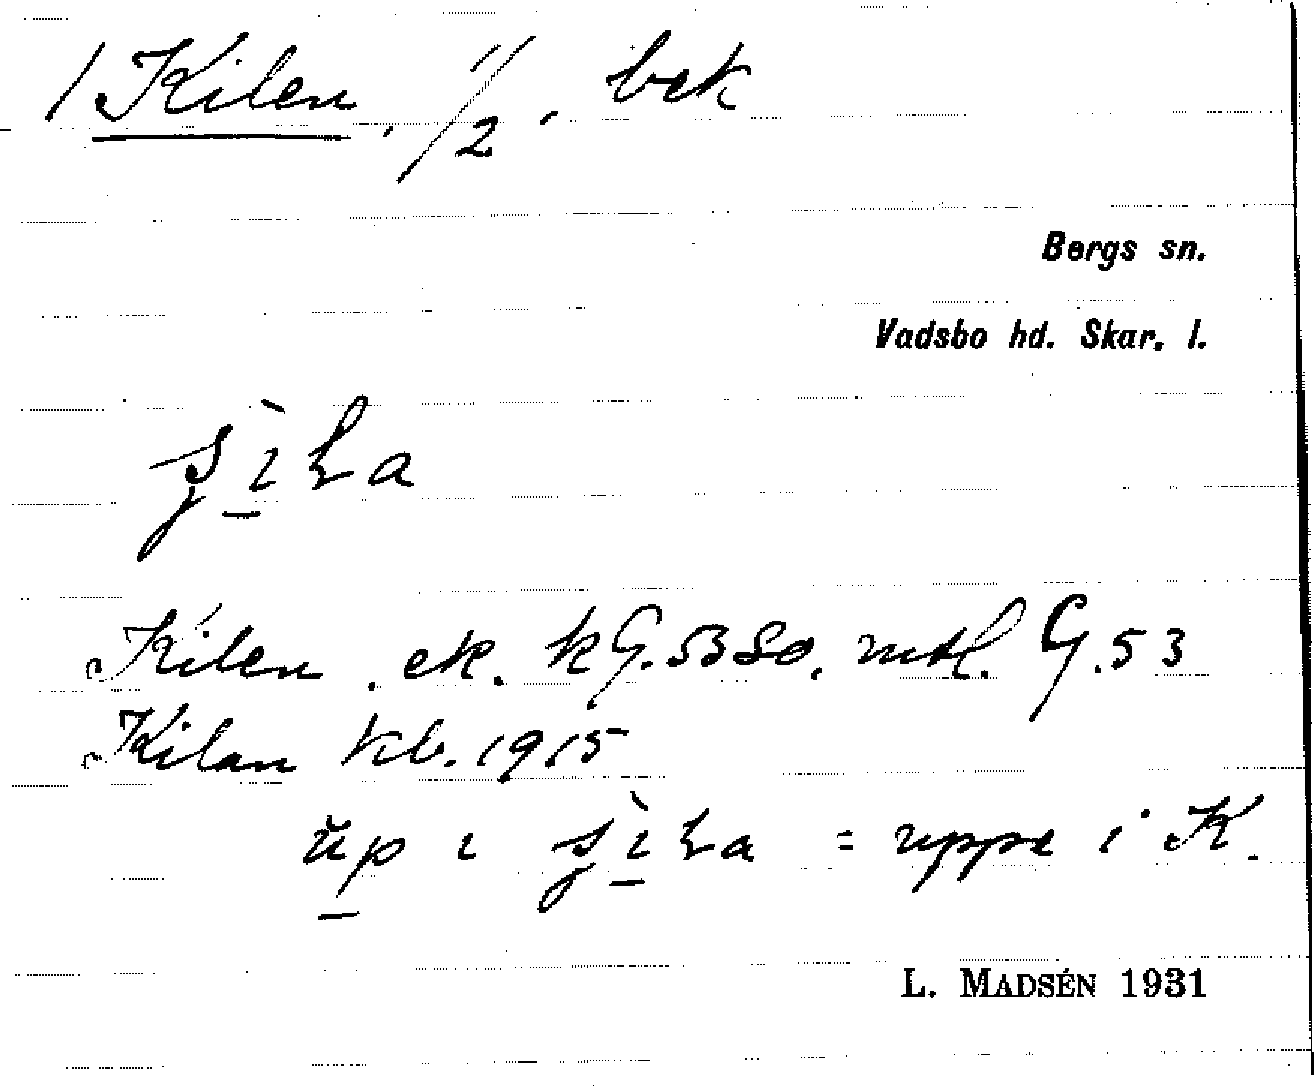 / Kilen, 1/2, bek
Bergs sn.
Vadsbo hd. Skar. l.
Kilen. ek. kG. 53 So. mtl. G. 53
Kilan kb. 1915
= uppe i K.
L. MADSÉN 1931